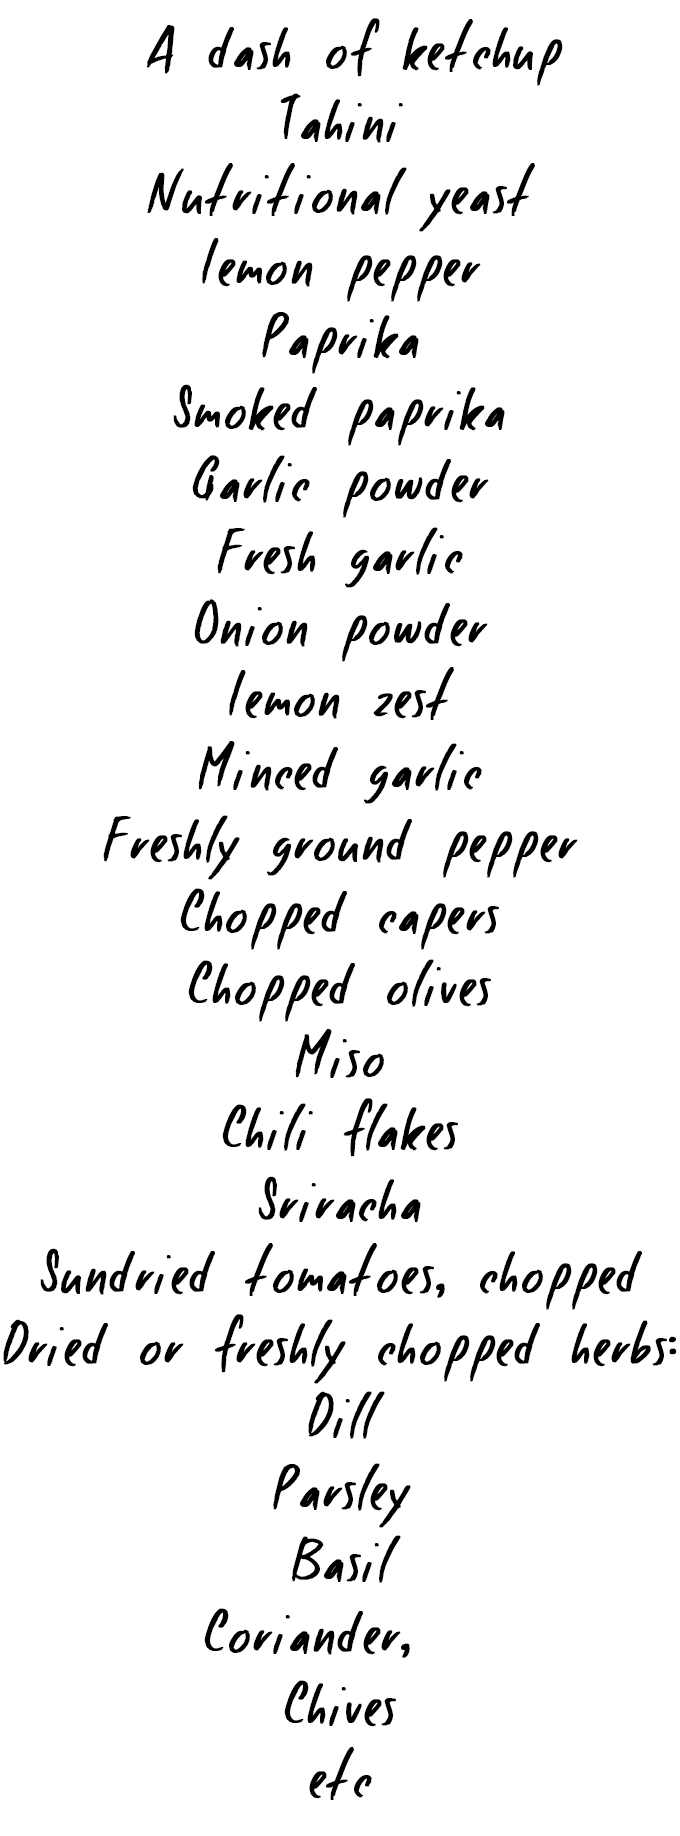 A dash of ketchup
Tahini
Nutritional yeast
lemon pepper
Paprika
Smoked paprika
Garlic powder
Fresh garlic
Onion powder
lemon zest
Minced garlic
Freshly ground pepper
Chopped capers
Chopped olives
Miso
Chili flakes
Sriracha
Sundried tomatoes, chopped
Dried or freshly chopped herbs:
Dill
Parsley
Basil
Coriander,
Chives
etc